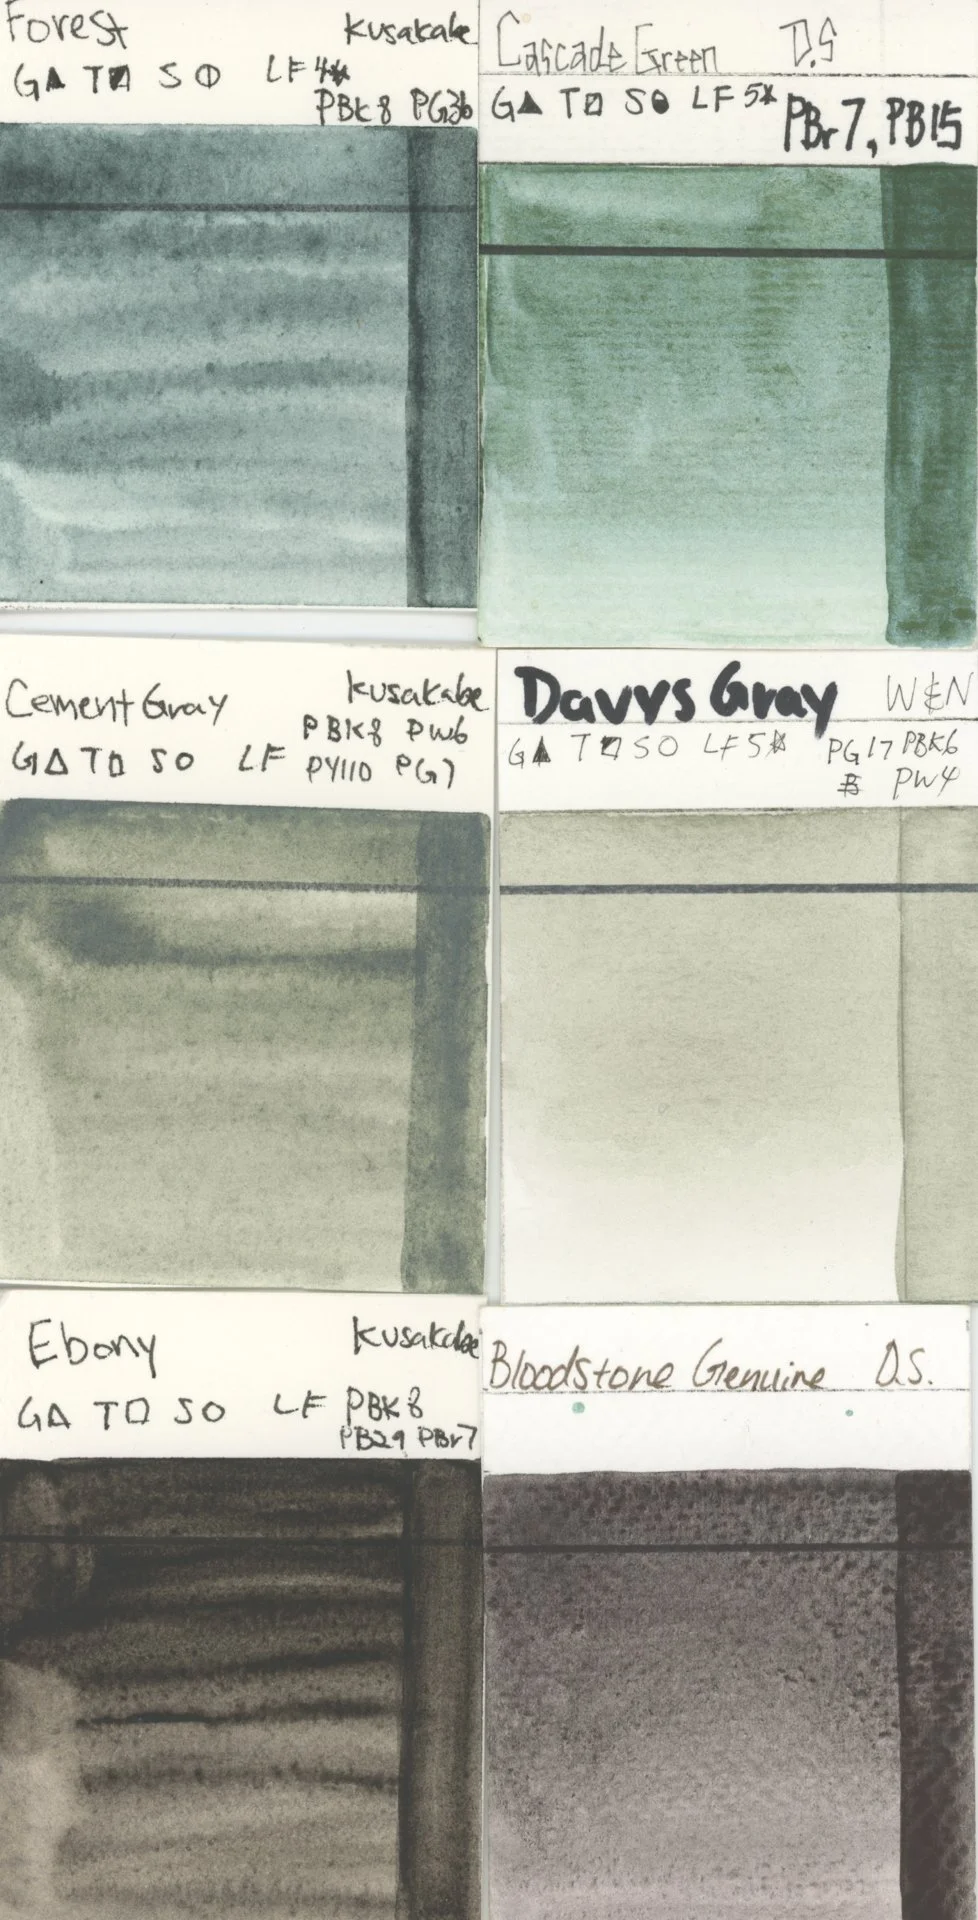 Forest Kusakabe
G▲ T◩ S⦶ LF 4*
PBk8 PG36
Cascade Green D.S
G▲ T◩ S● LF 5*
PBr7, PB15
Cement Gray Kusakabe
PBK8 PW6
G△ T◩ S○ LF PY110 PG7
Davys Gray W&N
G▲ T◩ S○ LF 5* PG17 PBK6
PW4
Ebony Kusakabe
G△ T□ S○ LF PBK8
PB29 PBr7
Bloodstone Genuine D.S.